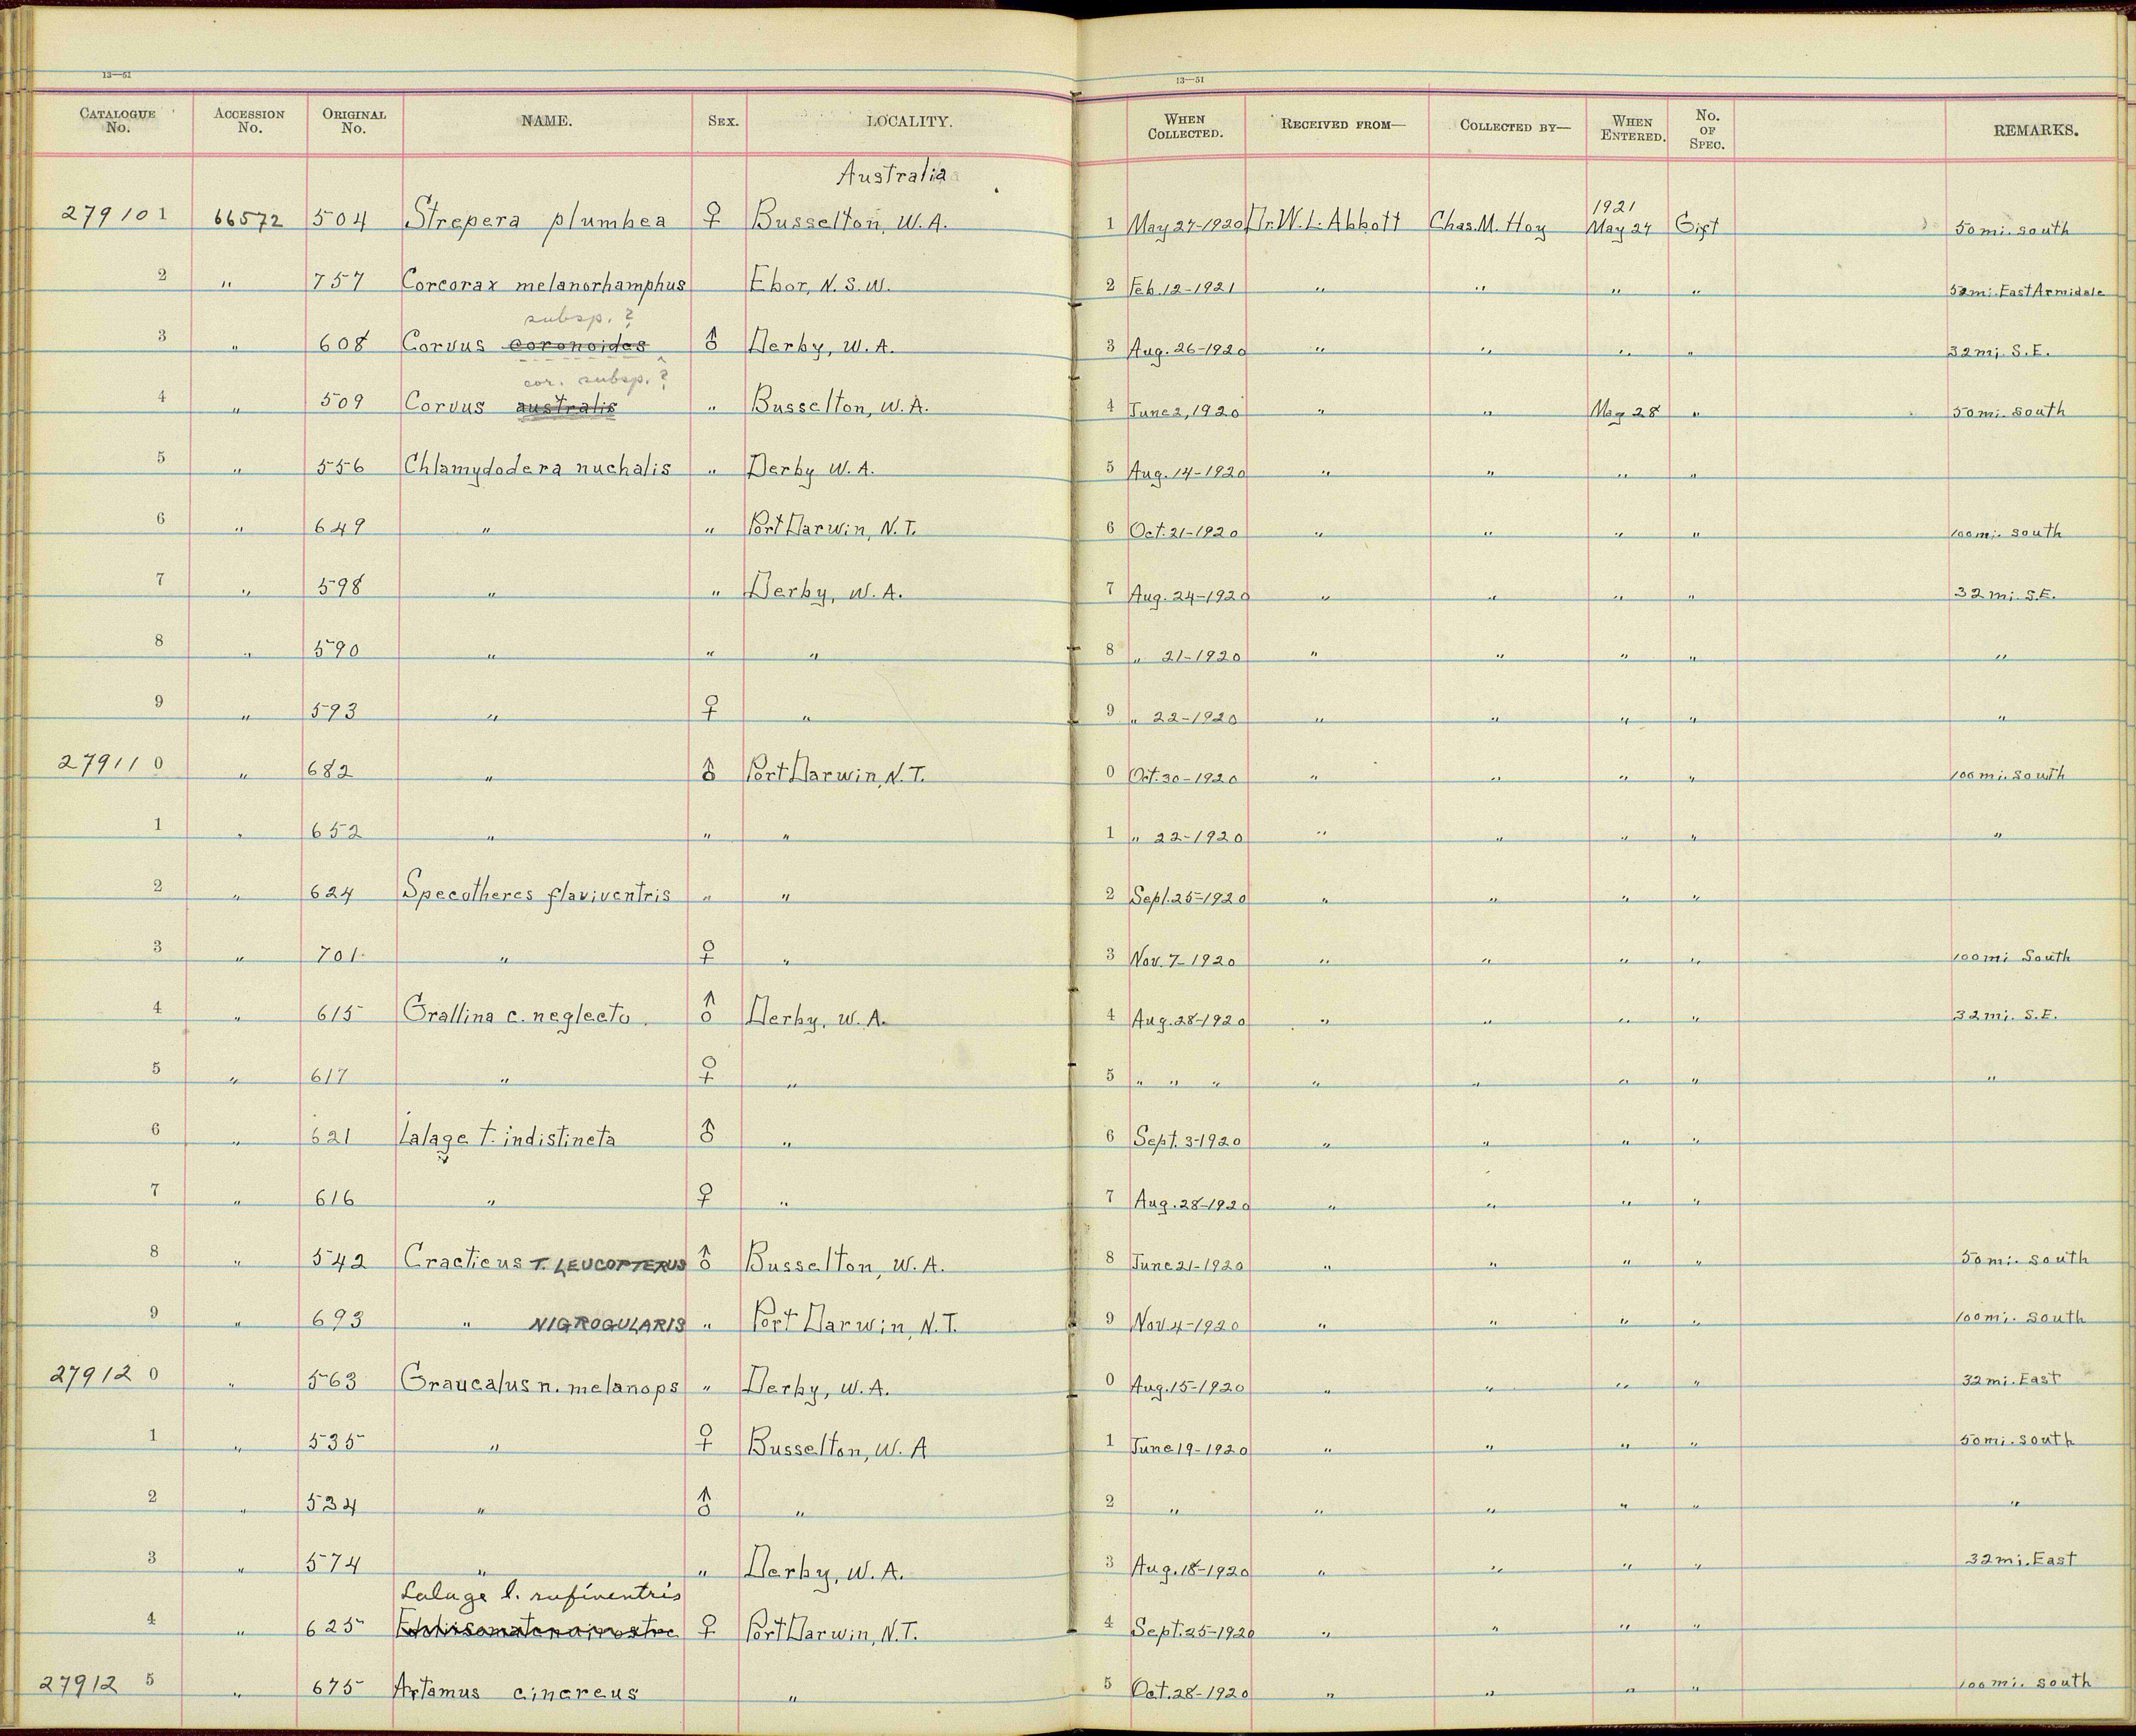 13—51 13—51
CATALOGUE No. ACCESSION No. ORIGINAL No. NAME. SEX. LOCALITY. WHEN COLLECTED. RECEIVED FROM— COLLECTED BY— WHEN ENTERED. No. OF SPEC. REMARKS.
Australia
1921
279101 66572 504 Strepera plumbea ♀ Busselton, W.A. 1 May 27-1920 Dr. W. L. Abbott Chas. M. Hoy May 27 Gift 50 mi. south
2 " 757 Corcorax melanorhamphus Ebor, N.S.W. 2 Feb. 12-1921 " " " " 50 mi. East Armidale
subsp. ?
3 " 608 Corvus coronoides ♂ Derby, W.A. 3 Aug. 26-1920 " " " " 32 mi. S.E.
cor. subsp. ?
4 " 509 Corvus australis " Busselton, W.A. 4 June 2, 1920 " " May 28 " 50 mi. south
5 " 556 Chlamydodera nuchalis " Derby W.A. 5 Aug. 14-1920 " " " "
6 " 649 " " Port Darwin, N.T. 6 Oct. 21-1920 " " " " 100 mi. south
7 " 598 " " Derby, W.A. 7 Aug. 24-1920 " " " " 32 mi. S.E.
8 " 590 " " " 8 " 21-1920 " " " " "
9 " 593 " ♀ " 9 " 22-1920 " " " " "
279110 " 682 " ♂ Port Darwin, N.T. 0 Oct. 30-1920 " " " " 100 mi. south
1 " 652 " " " 1 " 22-1920 " " " " "
2 " 624 Specotheres flaviventris " " 2 Sept. 25-1920 " " " "
3 " 701 " ♀ " 3 Nov. 7-1920 " " " " 100 mi South
4 " 615 Grallina c. neglecta ♂ Derby, W.A. 4 Aug. 28-1920 " " " " 32 mi. S.E.
5 " 617 " ♀ " 5 " " " " " " " "
6 " 621 Lalage t. indistincta ♂ " 6 Sept. 3-1920 " " " "
7 " 616 " ♀ " 7 Aug. 28-1920 " " " "
8 " 542 Cracticus T. LEUCOPTERUS ♂ Busselton, W.A. 8 June 21-1920 " " " " 50 mi. south
9 " 693 " NIGROGULARIS " Port Darwin, N.T. 9 Nov 4-1920 " " " " 100 mi. south
279120 " 563 Graucalus n. melanops " Derby, W.A. 0 Aug. 15-1920 " " " " 32 mi. East
1 " 535 " ♀ Busselton, W.A 1 June 19-1920 " " " " 50 mi. south
2 " 534 " ♂ " 2 " " " " " "
3 " 574 " " Derby, W.A. 3 Aug. 18-1920 " " " " 32 mi. East
Lalage l. rufiventris
4 " 625 ♀ Port Darwin, N.T. 4 Sept. 25-1920 " " " "
279125 " 675 Artamus cinereus " 5 Oct. 28-1920 " " " " 100 mi. south